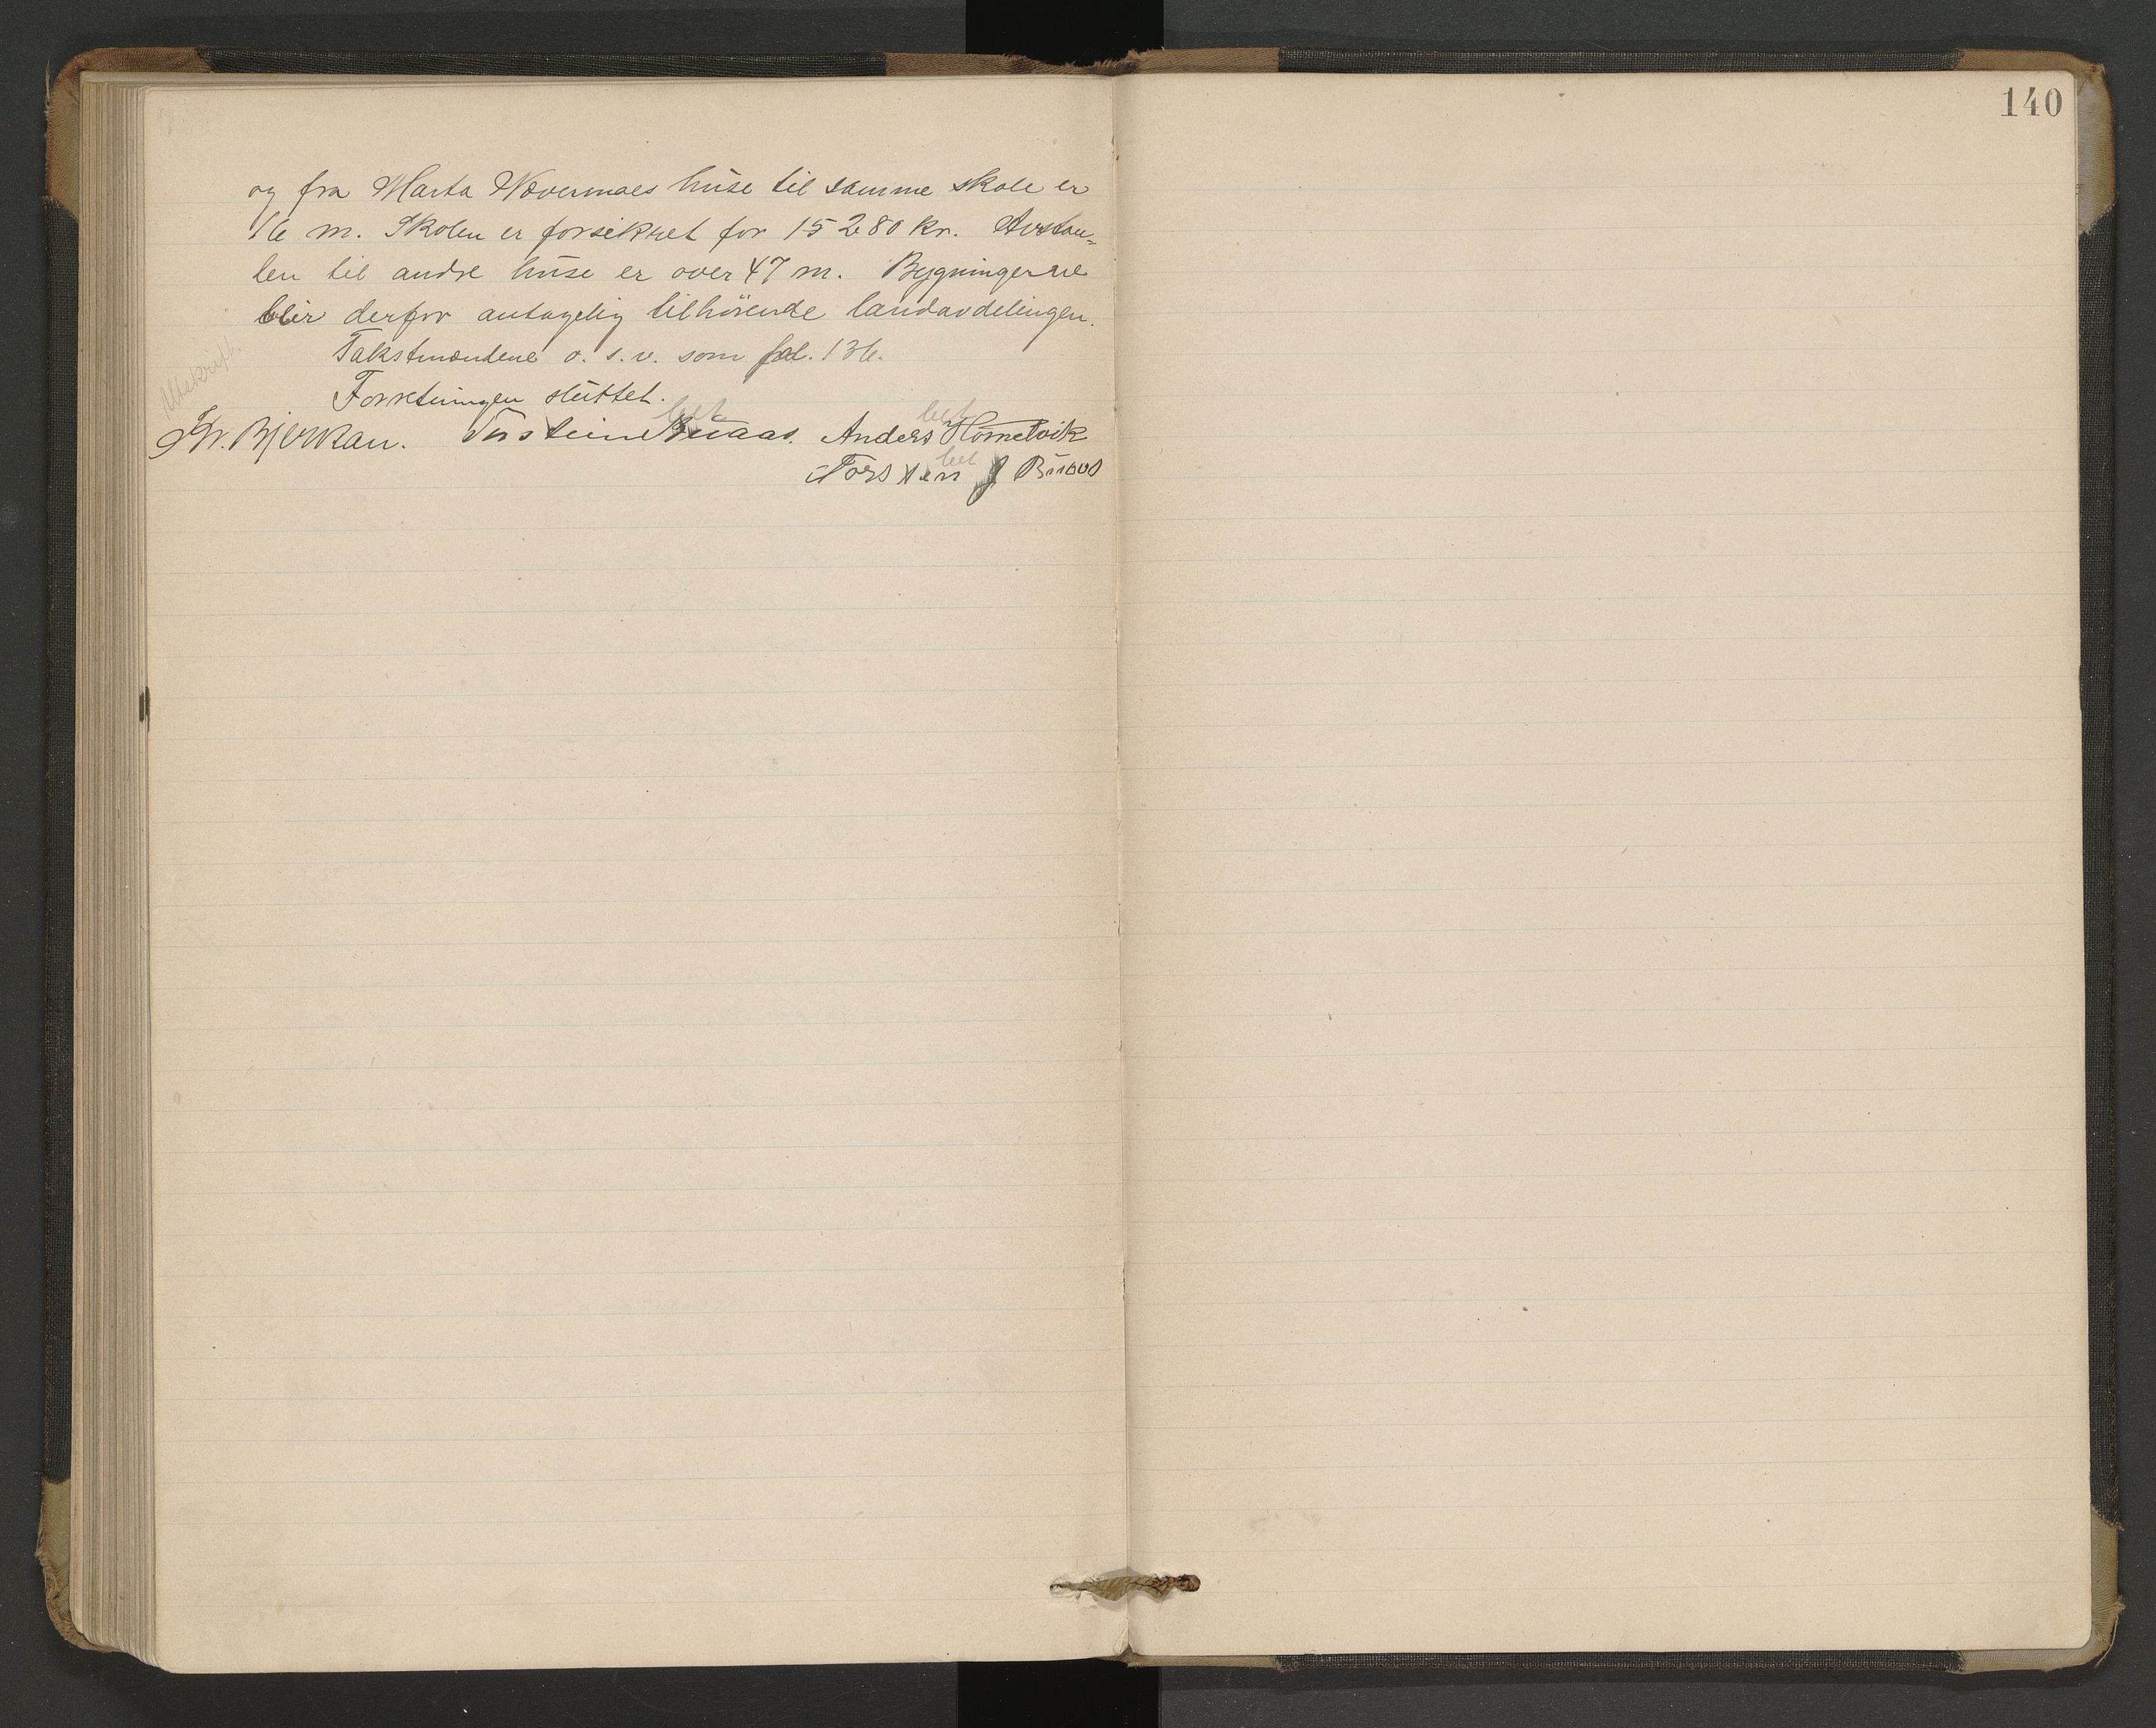 140
og fra Marta Nævermoes huse til samme skole er
16 m. Skolen er forsikret for 15280 kr. Avstan=
den til andre huse er over 47 m. Bygningerne
blir derfor antagelig tilhörende landavdelingen.
Takstmændene o. s. v. som fol. 136.
Utskrift.
Forretningen sluttet.
bet bet
Fr. Bjerkan. Torstein Buaas. Anders Hometvik
bet
Torsten J Buaas